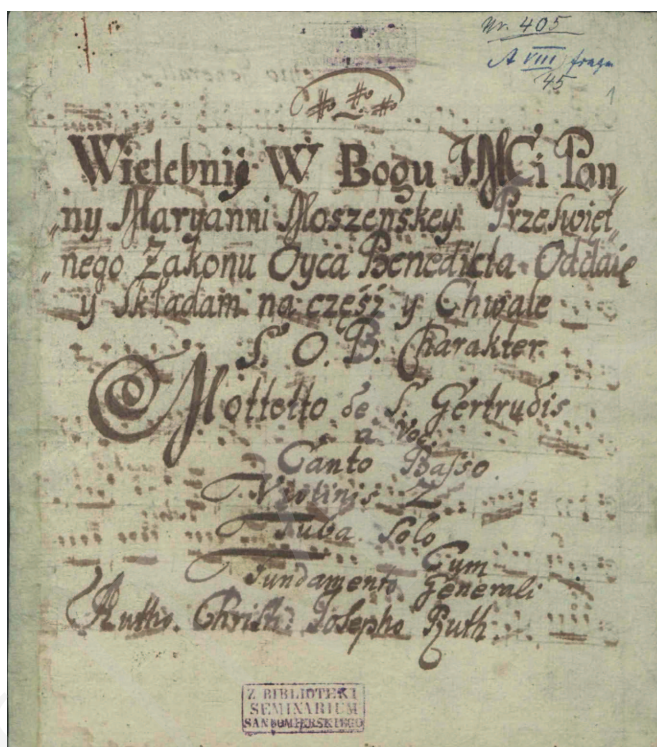 Nr. 405
A VIII
45
1
Wielebnij W Bogu JMCi Pan„
„ny Maryanni Moszenskey Przeswięt„
„nego Zakonu Oyca Benedicta Oddaię
y Składam na część y Chwałe
S. O. B. Charakter
Mottetto de S. Gertrudis
a Voc.
Canto Basso
Violinis 2
Tuba Solo
Cum
Fundamento Generali
Autho. Christ. Josepho Ruth.
Z BIBLIOTEKI
SEMINARIUM
SANDOMIERSKIEGO